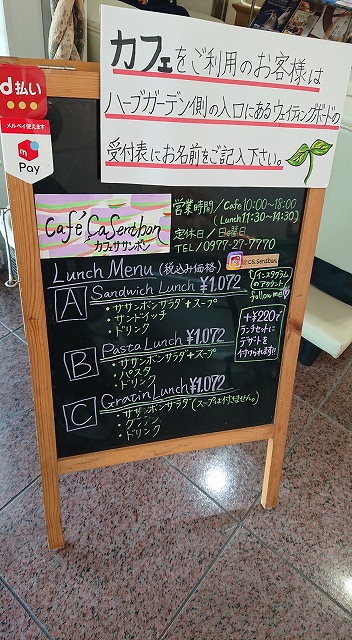 カフェをご利用のお客様は
ハーブガーデン側の入口にあるウェイティングボードの
受付表にお名前をご記入下さい。
d払い
メルペイ使えます
Pay
Café CaSentbon
カフェササンボン
営業時間/Cafe 10:00~18:00
(Lunch 11:30~14:30)
定休日/日曜日
TEL/0977-27-7770
Lunch Menu (税込み価格)
インスタグラム
のアカウント
follow me
A Sandwich Lunch ¥1,072
・ササンボンサラダ+スープ
・サンドイッチ
・ドリンク
B Pasta Lunch ¥1,072
・ササンボンサラダ+スープ
・パスタ
・ドリンク
C Gratin Lunch ¥1,072
・ササンボンサラダ(スープは付きません。)
・グラタン
・ドリンク
+¥220で
ランチセットに
デザートを
付けられます!!